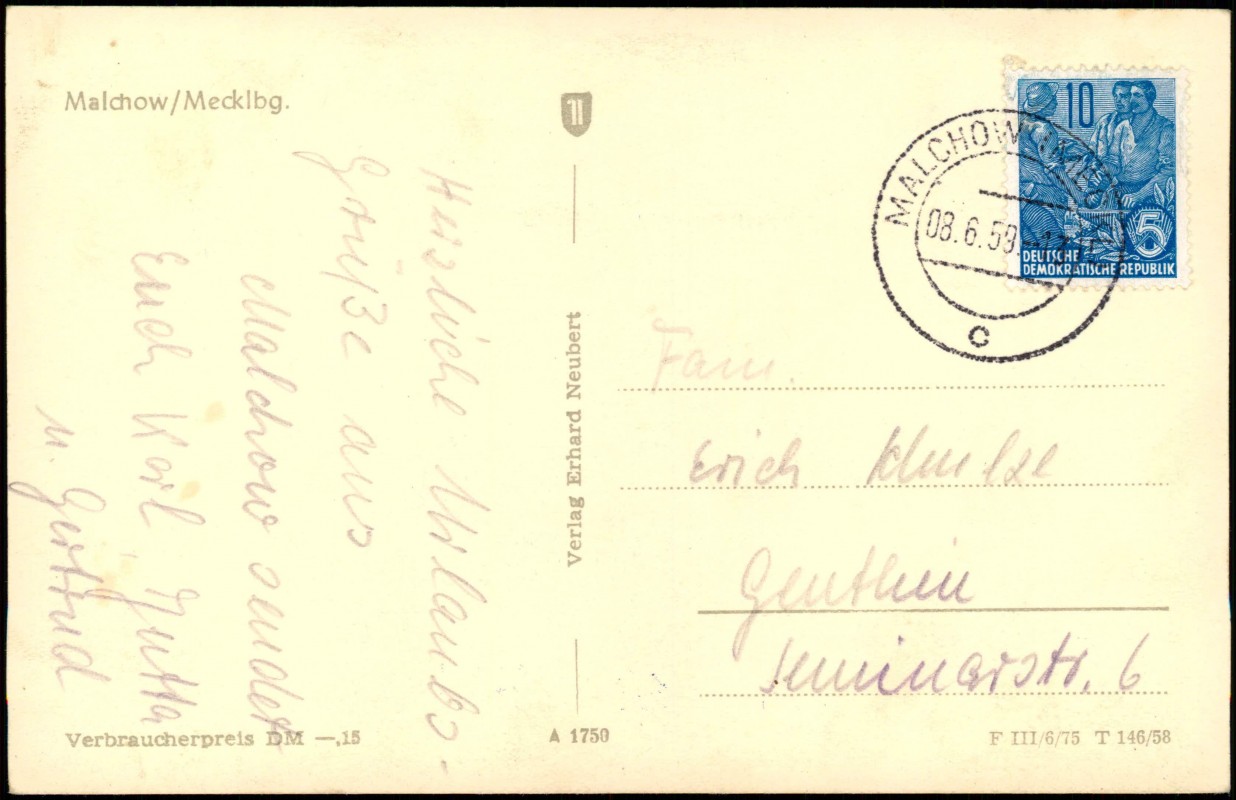 Malchow/Mecklbg.
Herzliche Urlaubs-
Grüße aus
Malchow sendet
Euch Karl Jutta
u. Gertrud
Verbraucherpreis DM -,15
Verlag Erhard Neubert
A 1750
10
5
DEUTSCHE
DEMOKRATISCHE REPUBLIK
MALCHOW
08.6.58
c
Fam.
Erich Schulze
Genthin
Seminarstr. 6
F III/6/75 T 146/58